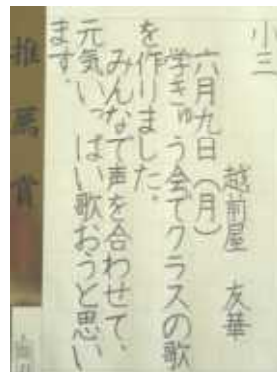 小三
越前屋 友華
六月九日(月)
学きゅう会でクラスの歌
を作りました。
みんなで声を合わせて、
元気いっぱい歌おうと思い
ます。
推薦賞